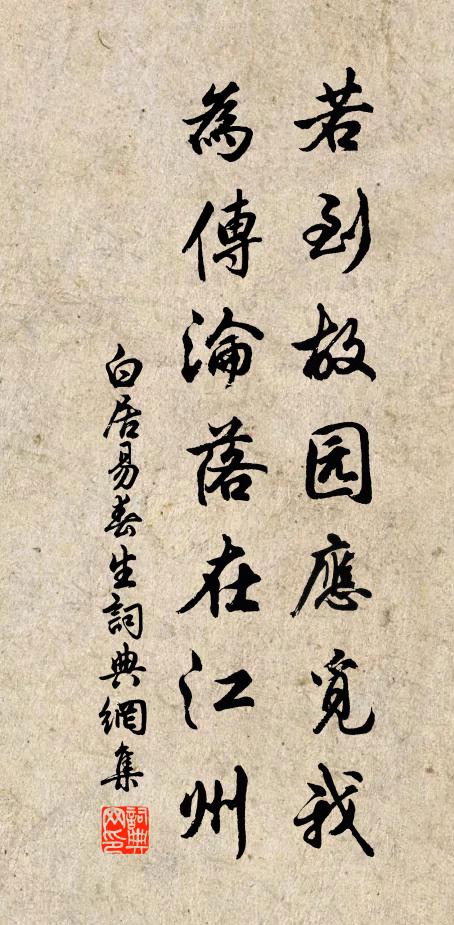 若到故园應覓我
為傳淪落在江州
白居易春生詞典網集
詞典网印